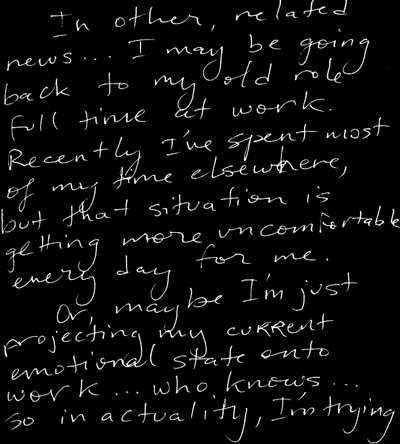 In other, related
news... I may be going
back to my old role
full time at work.
Recently I've spent most
of my time elsewhere,
but that situation is
getting more uncomfortable
every day for me.
Or, maybe I'm just
projecting my current
emotional state onto
work... who knows...
so in actuality, I'm trying